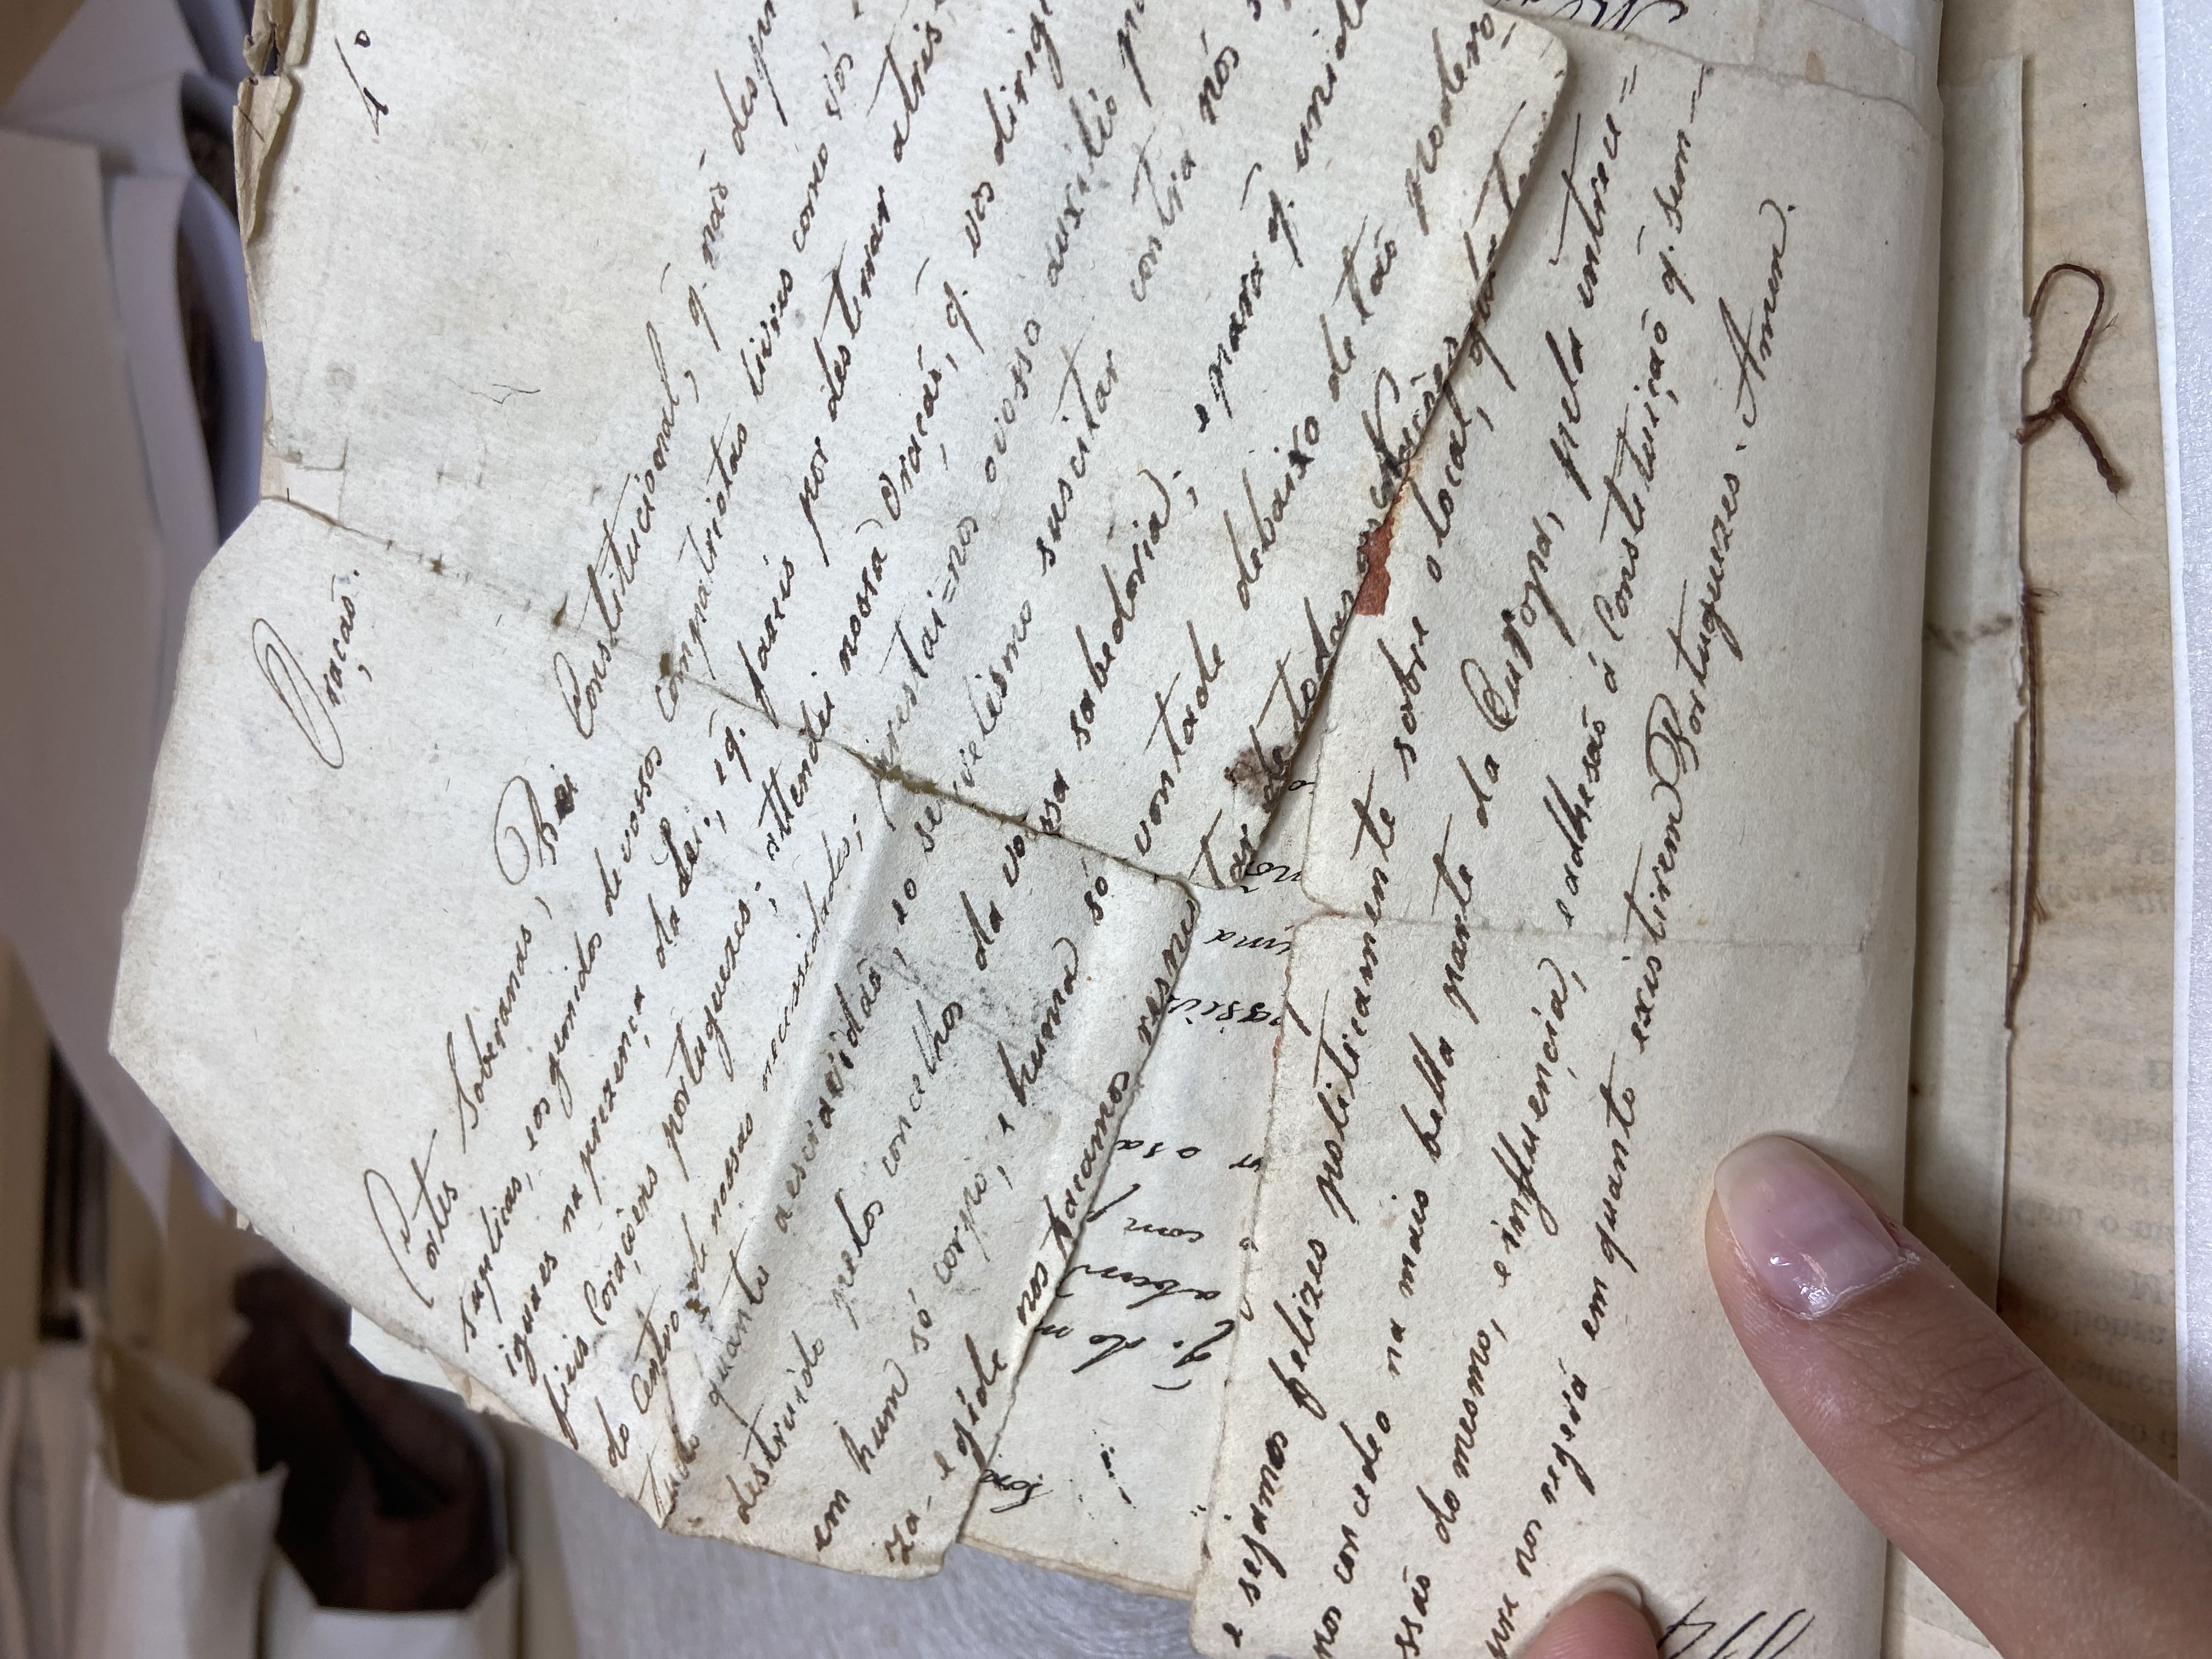 4º
Oração.
Cortes Soberanas, Rei Constitucional, q̃. não despre
suplicas, e os gemidos de vossos compatriotas livres como vós e
iguaes na prezença da Lei, e q̃. fazeis por desterrar atris-
fieis Coraçoens portuguezes; attendei nossa Oração, q̃. vos dirigi
do Centro de nossas necessidades; prestai=nos o vosso auxilio pa
tudo quanto a escravidão, e o servelismo suscitar contra nós s
destruido pelos concelhos da vossa sabedoria; e para q̃. unido
em hum só corpo, e huma só vontade debaixo de tão podero-
za- egide nos façamos respeitar de todas as Nações
e sejamos felizes politicamente sobre o local, que
nos concedeo na mais bella parte da Europa, pela intrece=
ssão do mesmo, e influencia, e adhesão á Constituição q̃. sem=
pre nos regerá em quanto existirem Portuguezes. Amen.
q̃. de
com
o sa
uma